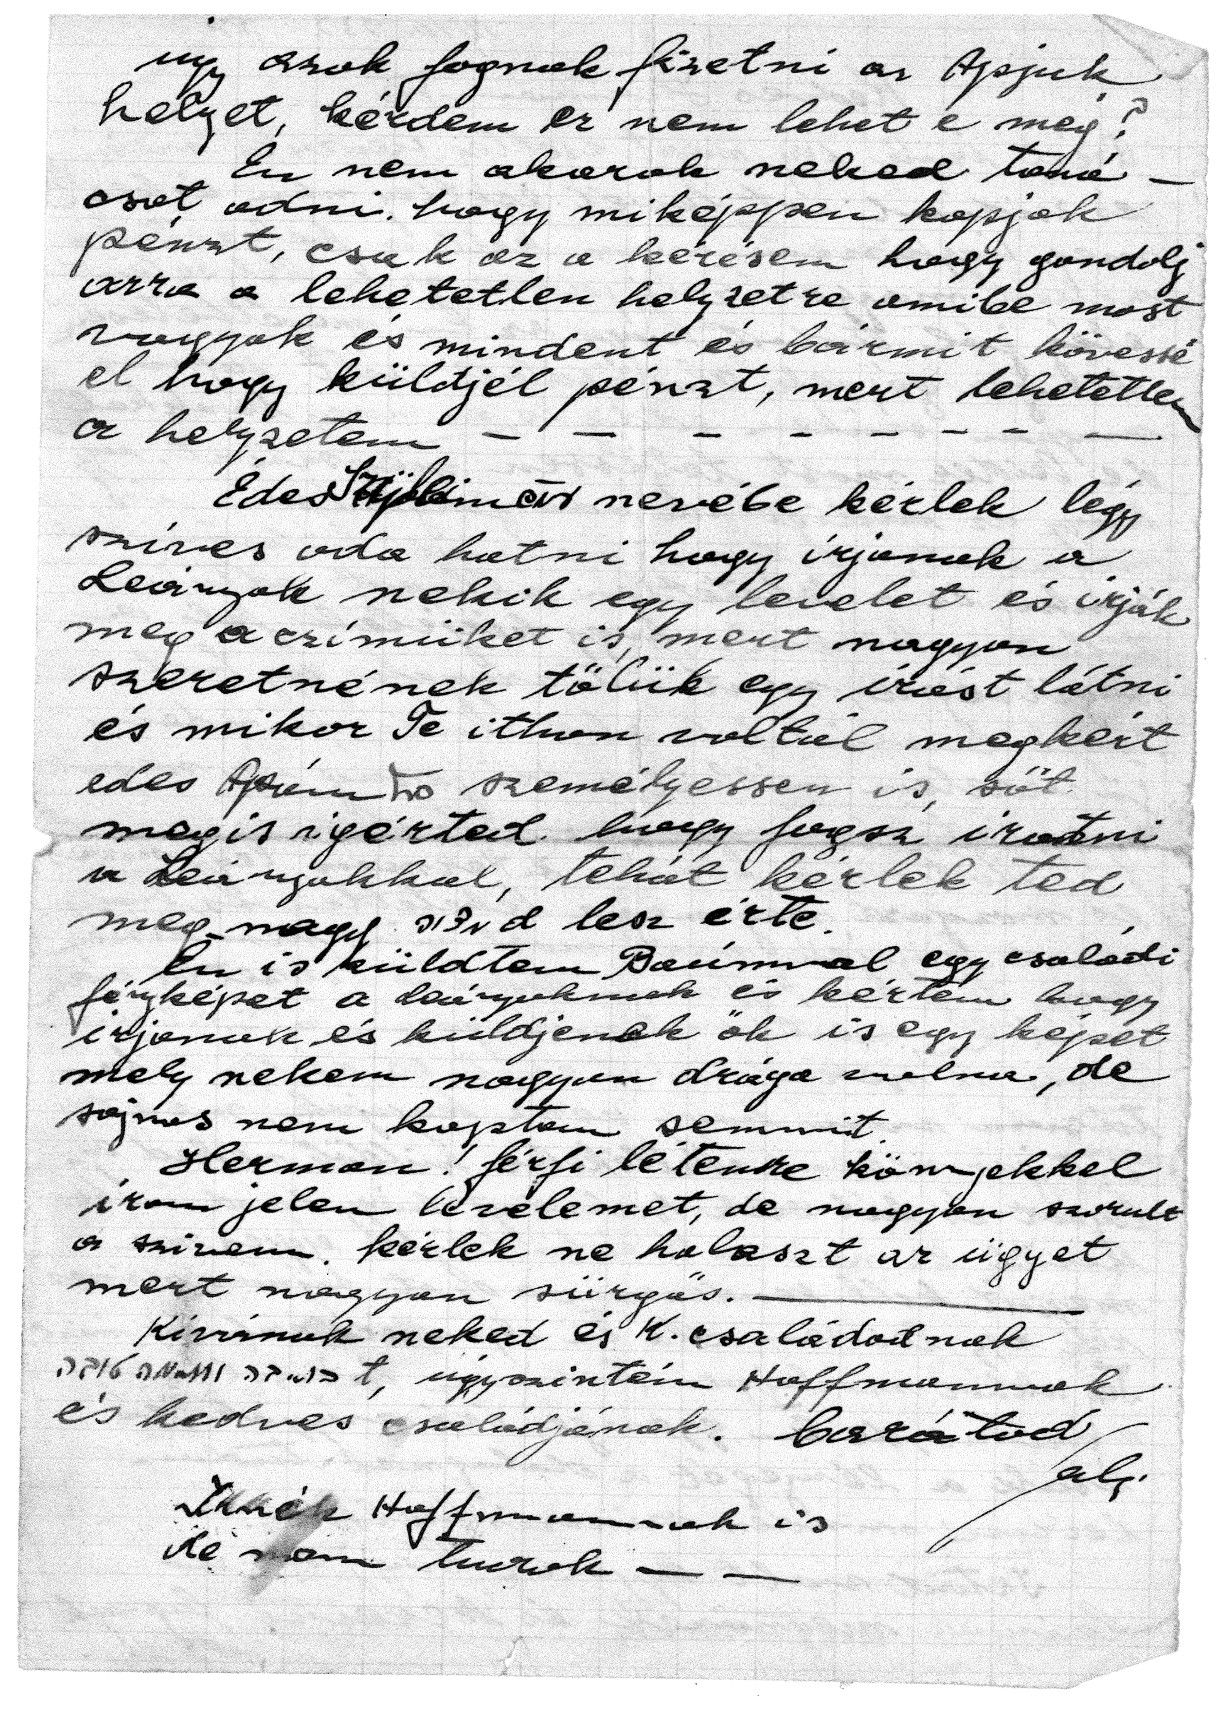 úgy azok fognak fizetni az Apjuk
helyet, kérdem ez nem lehet e még?
Én nem akarok neked taná-
csot adni. hogy miképpen kapjak
pénzt, csak az a kérésem hogy gondolj
arra a lehetetlen helyzetre amibe most
vagyok és mindent és bármit kövessé
el hogy küldjél pénzt, mert lehetetlen
a helyzetem — — — — — — — —
Édes nevébe kérlek légy
szíves oda hatni hogy irjanak a
Leányok nekik egy levelet és irják
meg a czímüket is, mert nagyon
szeretnének tőlük egy irást látni
és mikor Te itthon voltál megkért
edes Apám személyessen is, sőt
megis igérted hogy fogsz iratni
a Leányokkal, tehát kérlek ted
meg. nagy d lesz érte.
En is küldtem Baúmmal egy családi
fényképet a leányoknak és kértem hogy
irjanak és küldjenek ők is egy képet
mely nekem nagyon drága volna, de
sajnos nem kaptam semmit.
Herman! férfi létemre könyekkel
írom jelen levelemet, de nagyon szorult
a szivem. kérlek ne halaszt az ügyet
mert nagyon sürgős. ———
Kivánok neked és K. családodnak
כתיבה וחתימה טובה t, úgyszintén Hoffmannak
és kedves családjának. barátod
Írnék Hoffmannak is
de nem tudok — —